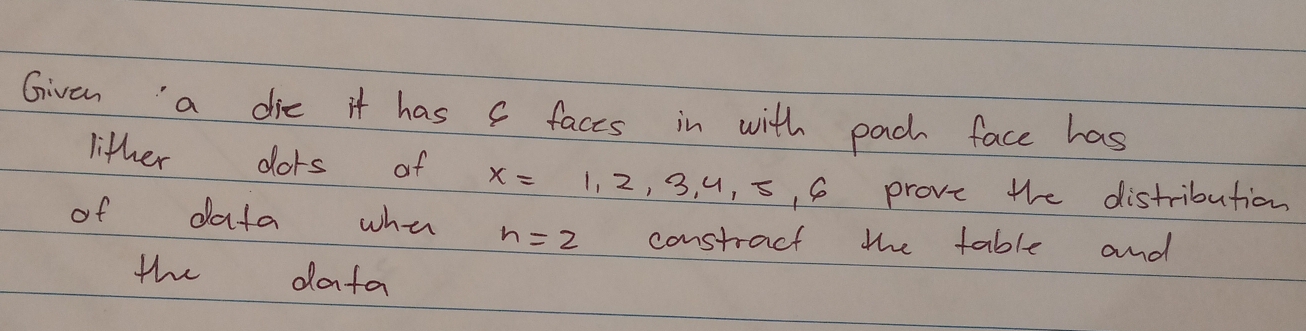 Given a die it has 6 faces in with each face has
lither dots of x = 1, 2, 3, 4, 5, 6 prove the distribution
of data when n = 2 constract the table and
the data